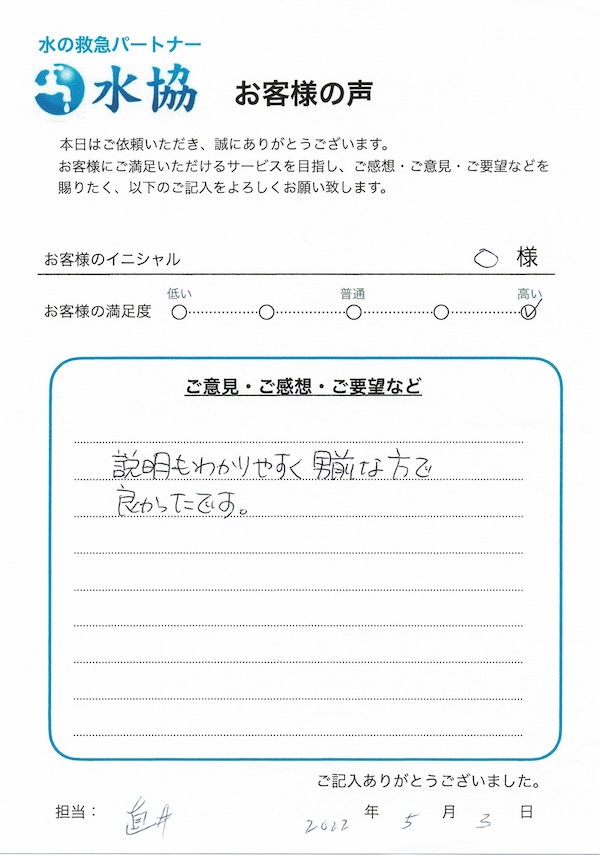 水の救急パートナー
水協 お客様の声
本日はご依頼いただき、誠にありがとうございます。
お客様にご満足いただけるサービスを目指し、ご感想・ご意見・ご要望などを
賜りたく、以下のご記入をよろしくお願い致します。
お客様のイニシャル 〇 様
低い 普通 高い
お客様の満足度
ご意見・ご感想・ご要望など
説明もわかりやすく男前な方で
良かったです。
ご記入ありがとうございました。
担当： 直井 2022 年 5 月 3 日